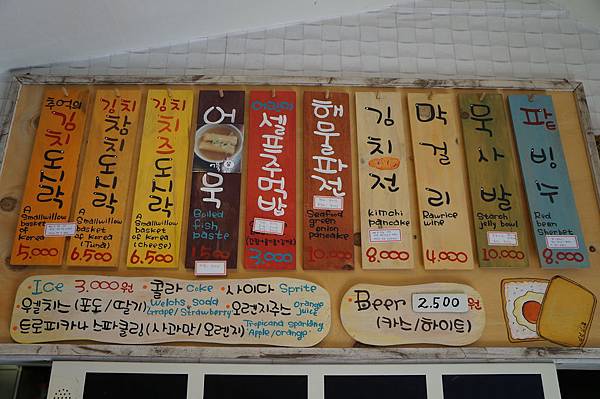 추억의
김치도시락
A Smallwillow
basket
of Korea
5.000
김치
참치도시락
A
Smallwillow
basket
of Korea
(Tuna)
6.500
김치
치즈도시락
A Smallwillow
basket
of Korea
(cheese)
6.500
어묵
Boiled
fish
paste
어린이
셀프주먹밥
3.000
해물파전
Seafood
green
onion
pancake
10.000
김치전
kimchi
pancake
8.000
막걸리
Rawrice
wine
4.000
묵사발
Starch
jelly bowl
10.000
팥빙수
Red
bean
Sherbet
8.000
Ice 3.000원 콜라 Coke 사이다 Sprite
웰치스 (포도/딸기) Welchs Soda Grape/Strawberry 오렌지주스 Orange juice
트로피카나 스파클링 (사과맛/오렌지) Tropicana sparkling Apple/orange
Beer 2.500원
(카스/하이트)